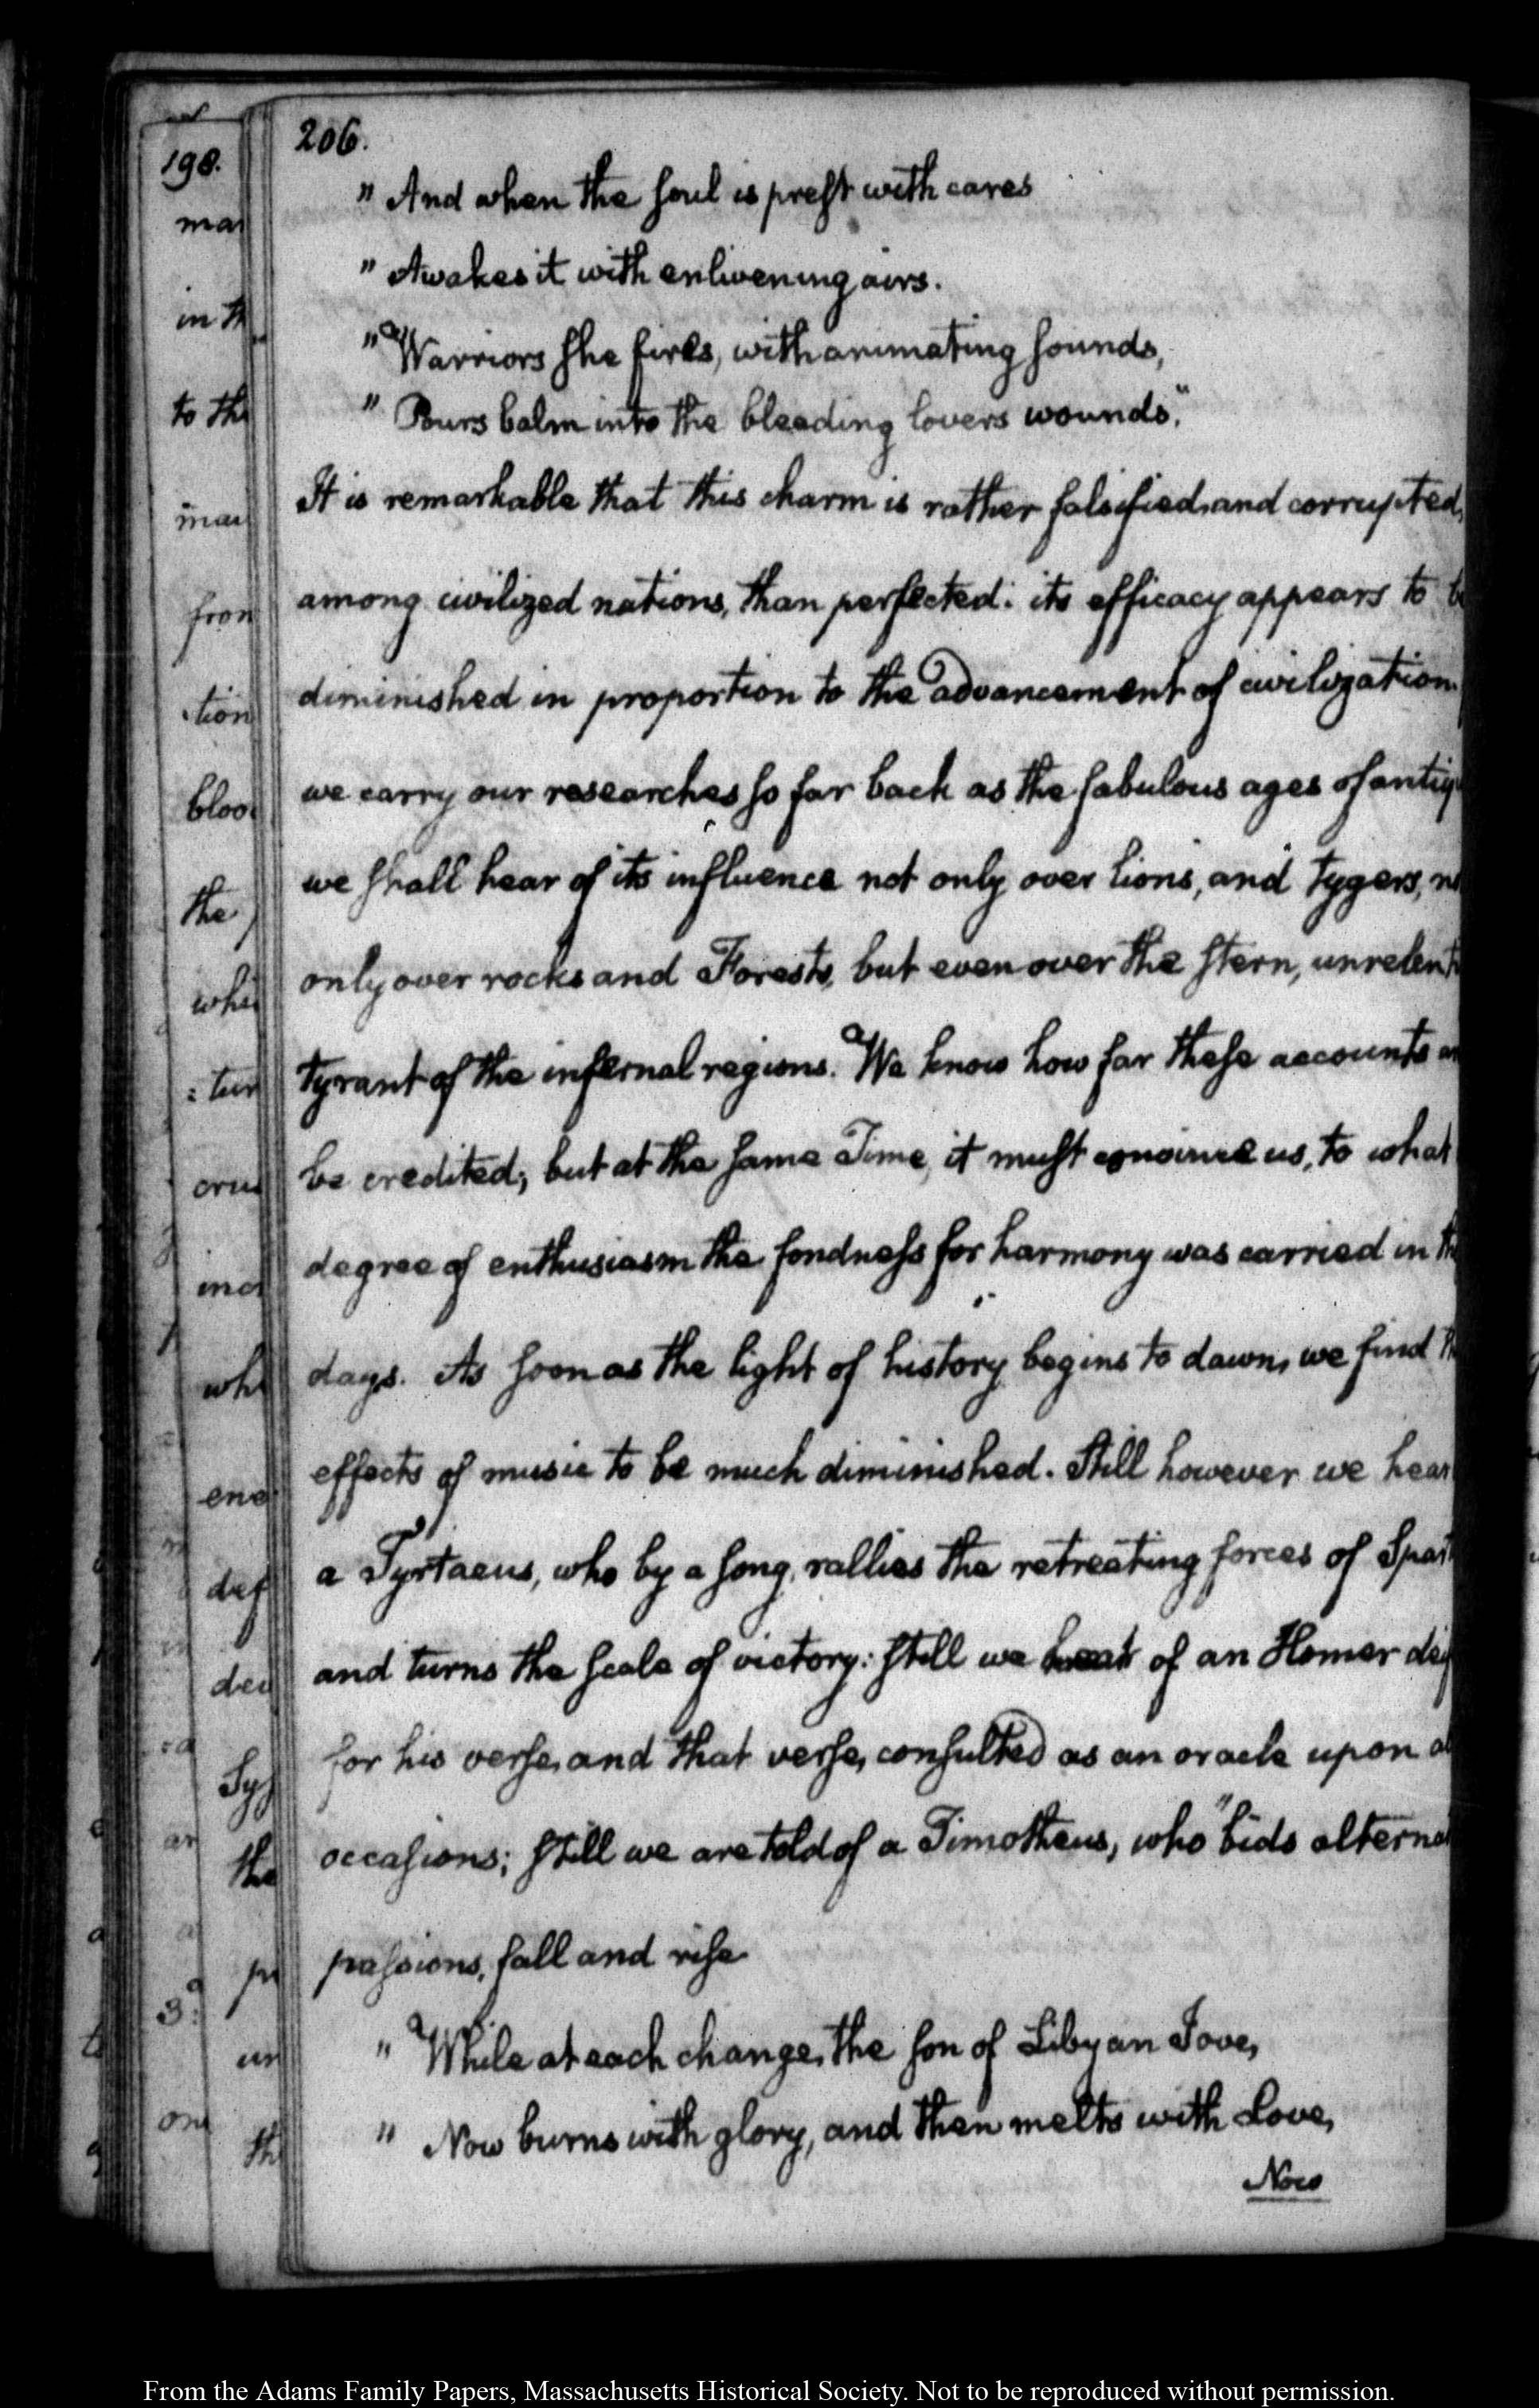 206.
" And when the soul is prest with cares
" Awakes it with enlivening airs.
" Warriors she fires, with animating sounds,
" Pours balm into the bleeding lovers wounds."
It is remarkable that this charm is rather falsified, and corrupted,
among civilized nations, than perfected: its efficacy appears to b
diminished in proportion to the advancement of civilization.
we carry our researches so far back as the fabulous ages of antiq
we shall hear of its influence not only over lions, and tygers, n
only over rocks and Forests, but even over the stern, unrelent
tyrant of the infernal regions. We know how far these accounts a
be credited; but at the same Time, it must convince us, to what
degree of enthusiasm the fondness for harmony was carried in th
days. As soon as the light of history begins to dawn, we find th
effects of music to be much diminished. Still however we hear
a Tyrtaeus, who by a song, rallies the retreating forces of Spar
and turns the scale of victory: still we hear of an Homer dei
for his verse, and that verse, consulted as an oracle upon a
occasions; still we are told of a Timotheus, who "bids alterna
passions, fall and rise
" While at each change, the son of Libyan Jove,
" Now burns with glory, and then melts with Love,
Now
198.
mar
in th
to the
mar
from
tion
bloo
the
whi
: tur
cru
inc
whi
end
def
dec
Sy
the
pr
un
th
3
one
From the Adams Family Papers, Massachusetts Historical Society. Not to be reproduced without permission.